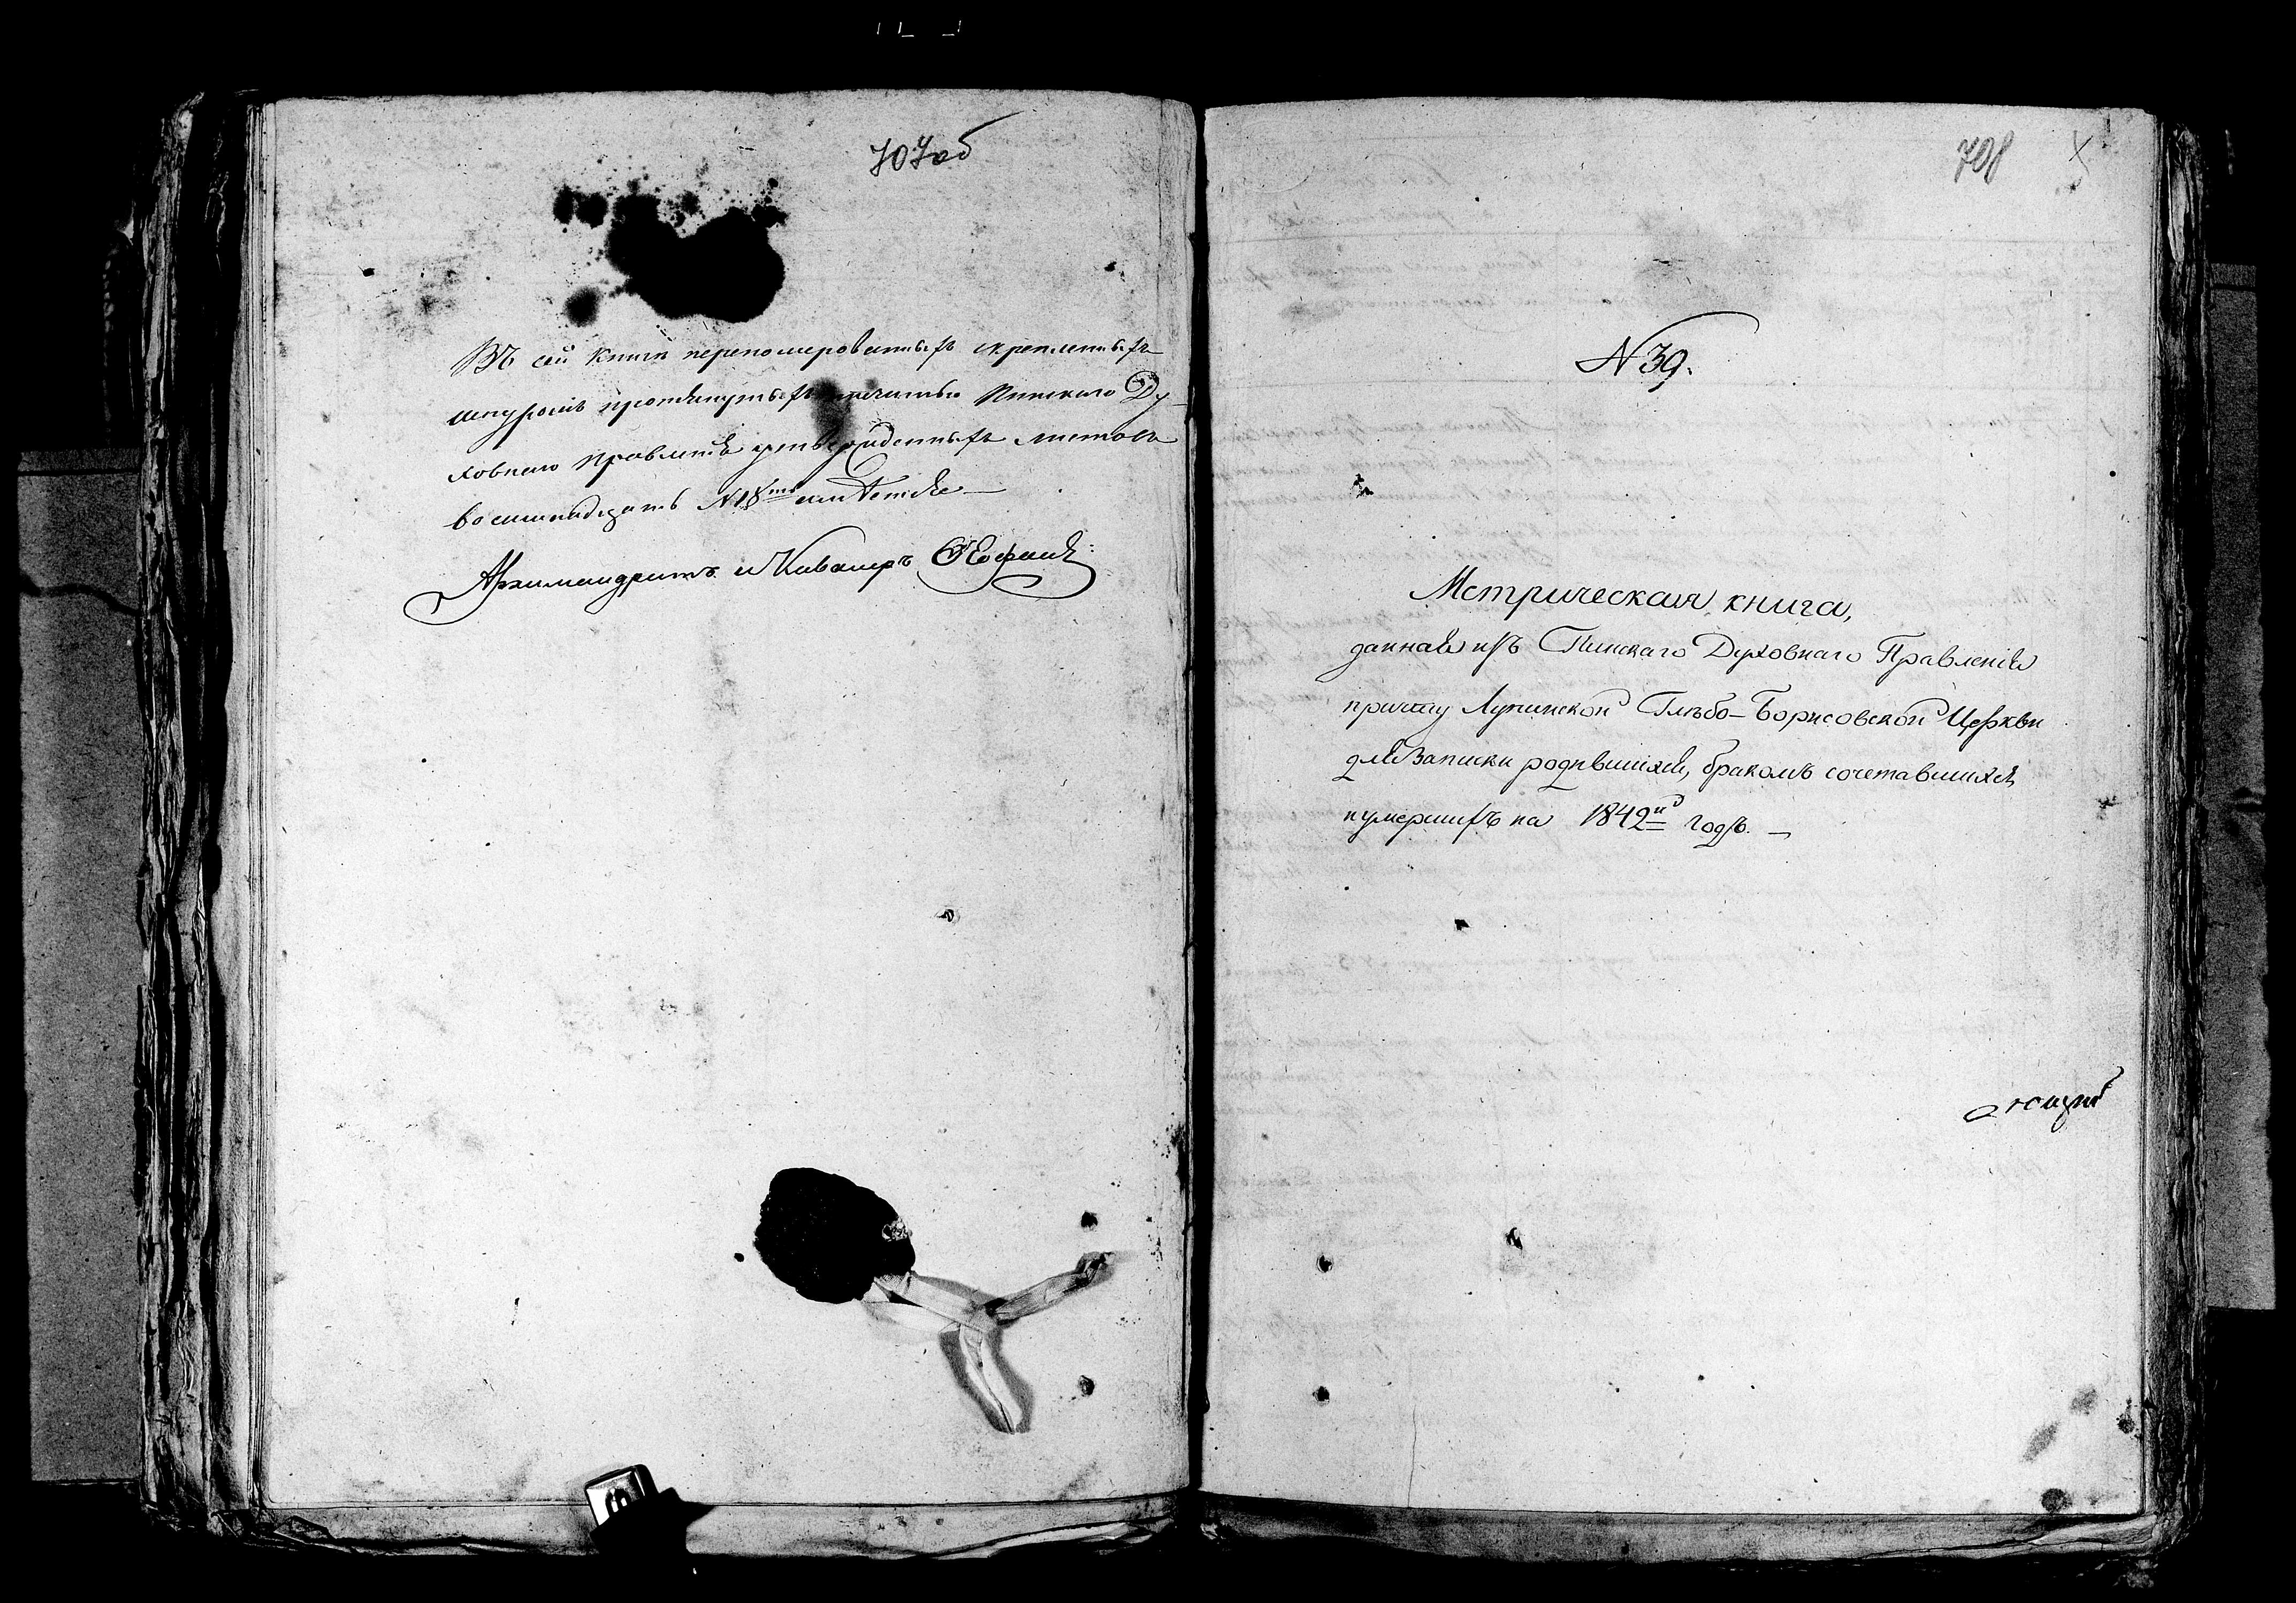 707об
Въ сей книги перепомерованныхъ скрепленныхъ
шнуромъ протянутыхъ печатью Пинскаго Ду-
ховнаго Правленія утвержденныхъ листовъ
восимнадцать №18
Архимандритъ и Кавалеръ
708
№ 39.
Метрическая книга,
данная изъ Пинскаго Духовнаго Правленія
причту Лунинской Глѣбо-Борисовской Церкви
для записки родившихся, бракомъ сочетавшихся
и умершихъ на 1842й годъ. —